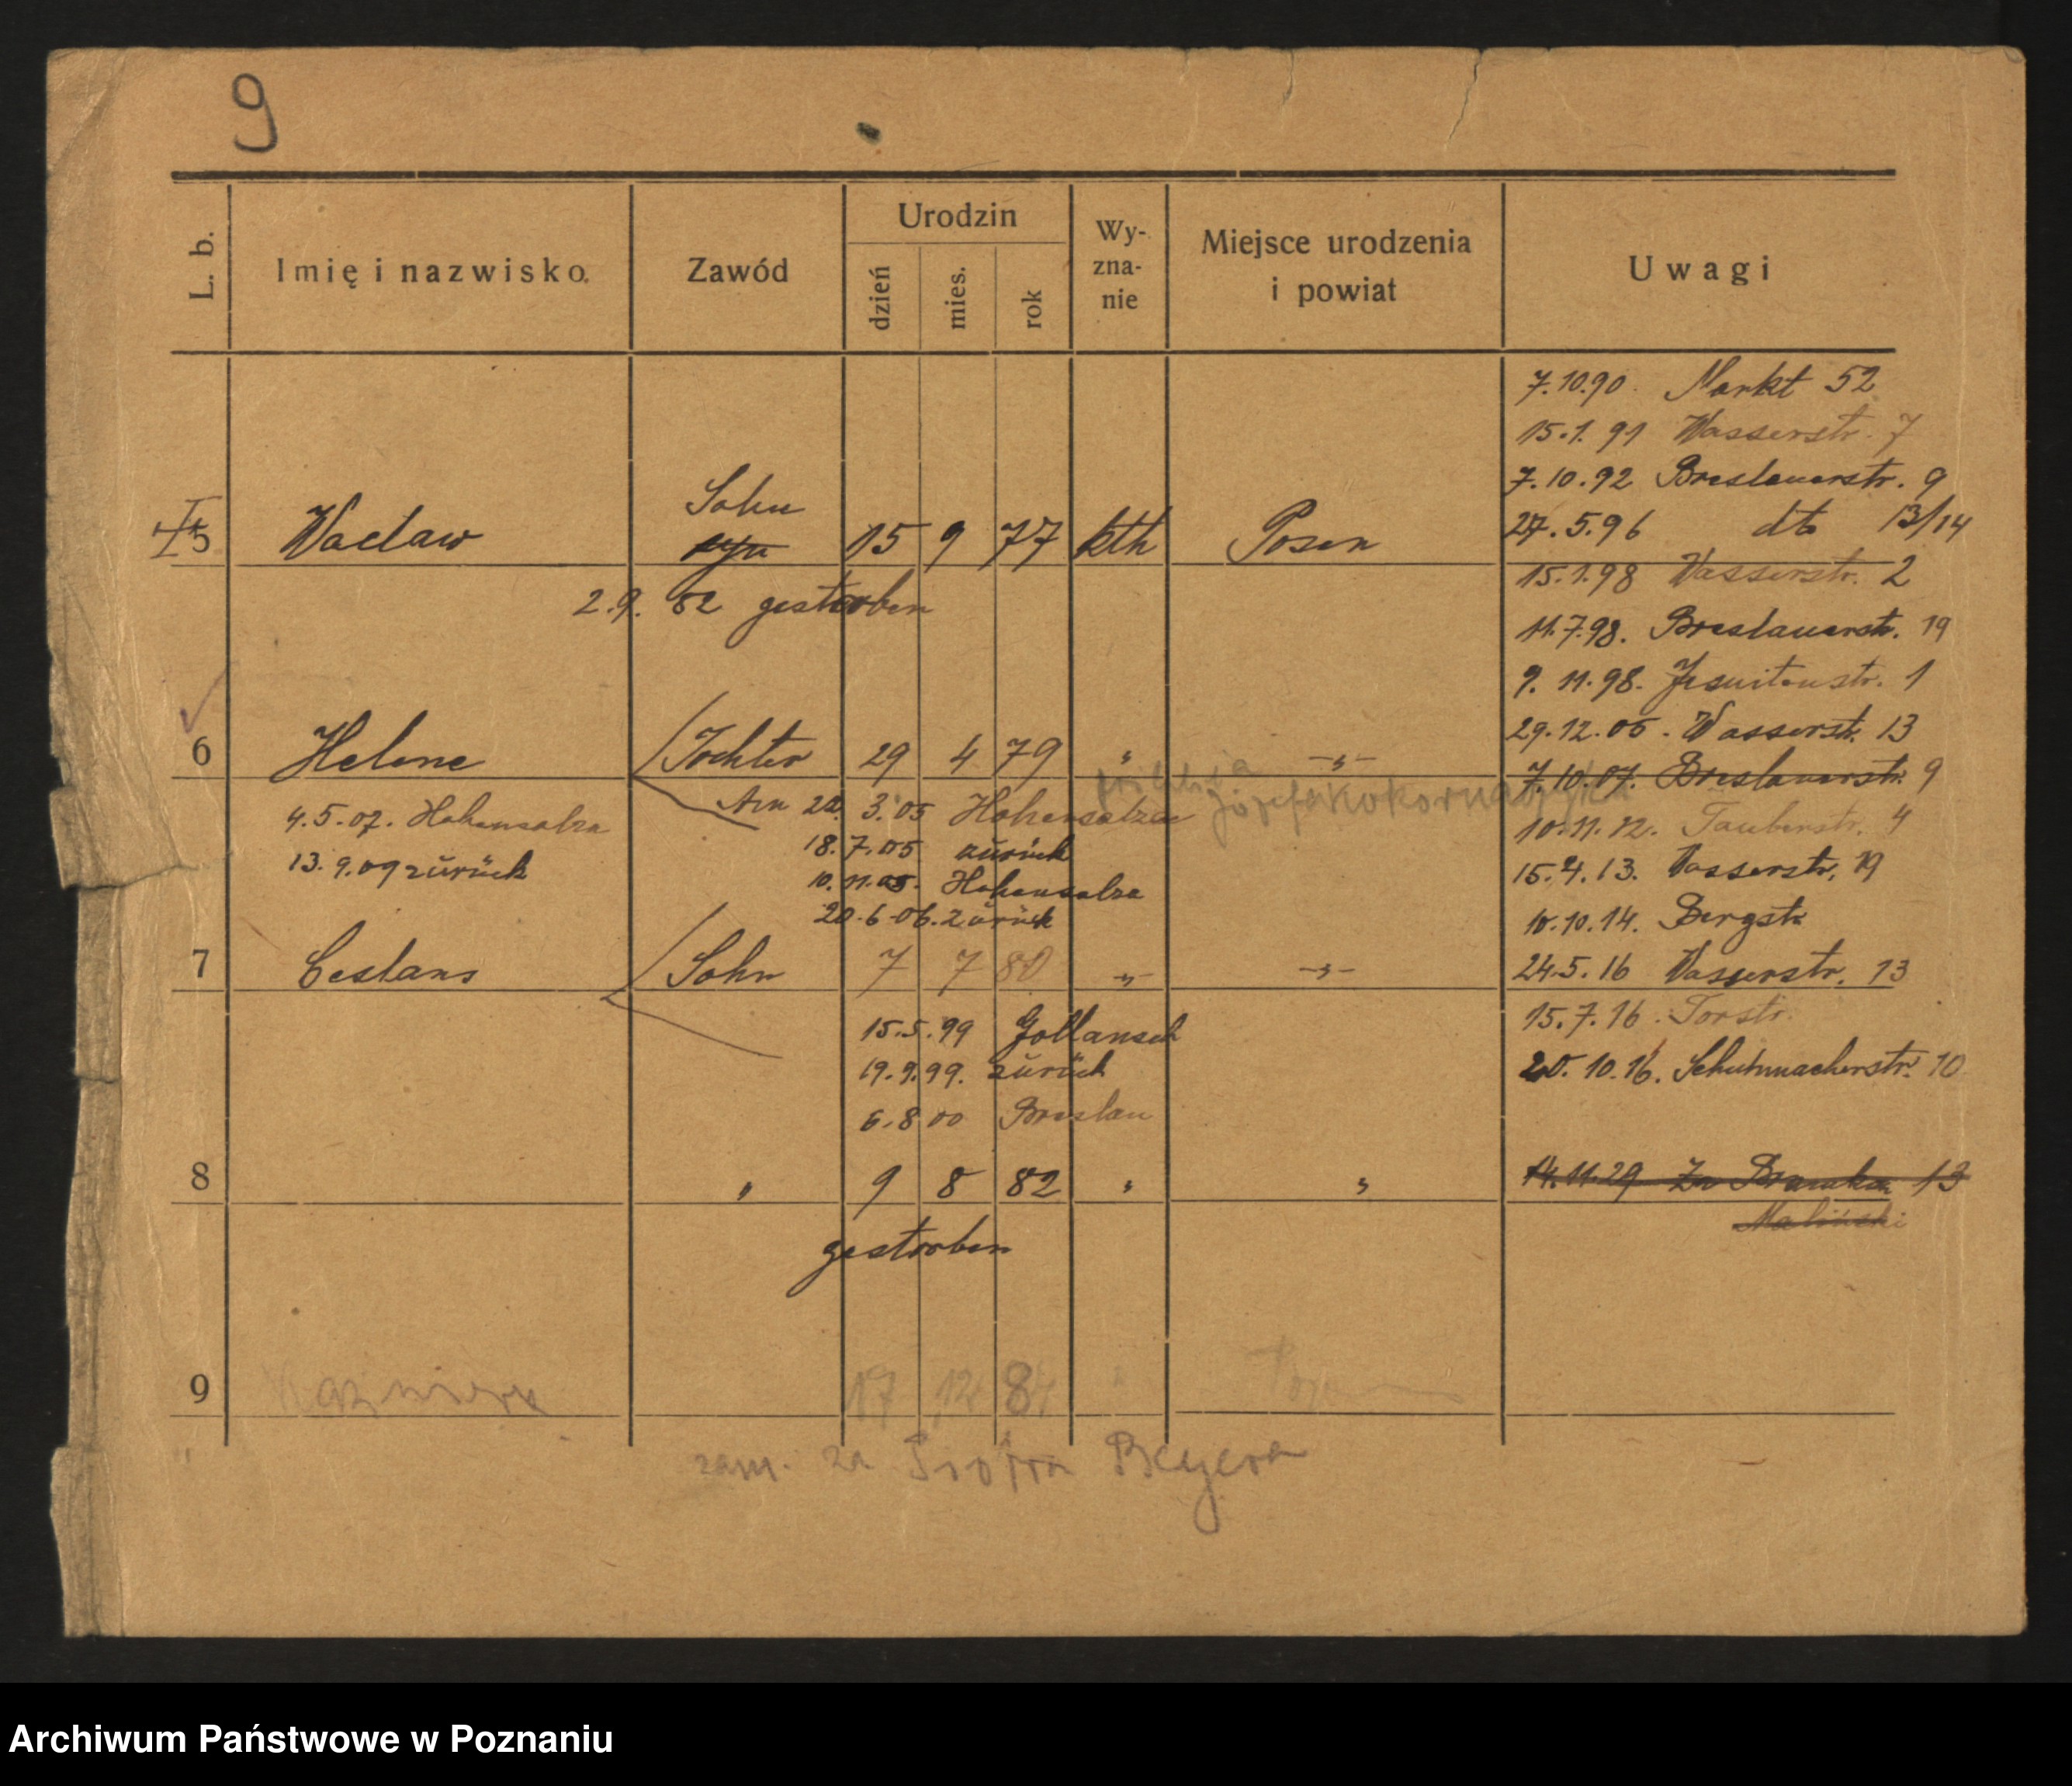 9
L. b.
Imię i nazwisko
Zawód
Urodzin
dzień
mies.
rok
Wy-
zna-
nie
Miejsce urodzenia
i powiat
Uwagi
7.10.90. Markt 52
15.1.91 Wasserstr. 7
7.10.92 Breslauerstr. 9
27.5.96 dto 13/14
Sohn
5 Waclaw 15 9 77 kth Posen
15.1.98 Wasserstr. 2
2.9.82 gestorben
11.7.98. Breslauerstr. 19
9.11.98. Jesuitenstr. 1
29.12.05. Wasserstr. 13
6 Helene Tochter 29 4 79 " -"-
7.10.07. Breslauerstr. 9
Am 22. 3.05 Hohensalza
Józefa Kokornaczyka
4.5.07. Hohensalza
10.11.12. Tauberstr. 4
18.7.05 zurück
13.9.09 zurück
15.4.13. Wasserstr. 19
10.11.05. Hohensalza
20.6.06. zurück
10.10.14. Bergstr
7 Ceslaus Sohn 7 7 80 -"- -"-
24.5.16 Wasserstr. 13
15.7.16. Torstr.
15.5.99 Gollansch
19.9.99. zurück
20.10.16. Schuhmacherstr. 10
6.8.00 Breslau
8 " 9 8 82 " "
14.11.29 Za Bramką 13
Maliński
gestorben
9 Kazimiera 17 12 84
zam. za Piotra Beyera
Archiwum Państwowe w Poznaniu